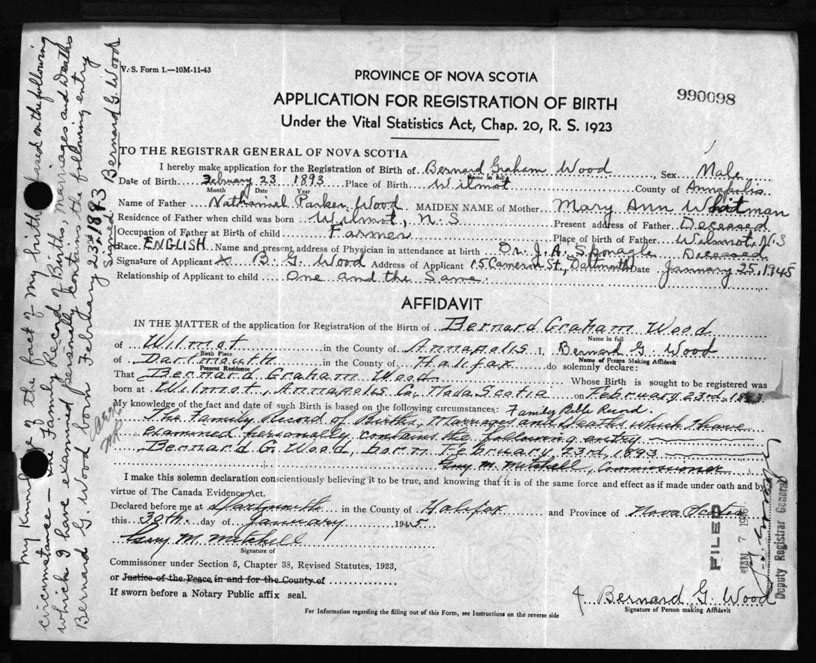 V. S. Form 1.—10M-11-43
PROVINCE OF NOVA SCOTIA
APPLICATION FOR REGISTRATION OF BIRTH
990098
Under the Vital Statistics Act, Chap. 20, R. S. 1923
TO THE REGISTRAR GENERAL OF NOVA SCOTIA
I hereby make application for the Registration of Birth of Bernard Graham Wood Sex Male
Name in full
Date of Birth February 23 1893 Place of Birth Wilmot County of Annapolis
Month Date Year
Name of Father Nathaniel Parker Wood MAIDEN NAME of Mother Mary Ann Whitman
Residence of Father when child was born Wilmot, N.S Present address of Father Deceased
Occupation of Father at Birth of child Farmer Place of birth of Father Wilmot, N.S
Race ENGLISH Name and present address of Physician in attendance at birth Dr. J. A. Sponagle Deceased
Signature of Applicant x B. G. Wood Address of Applicant 15 Cameron St, Dartmouth Date January 25, 1945
Relationship of Applicant to child One and the Same.
AFFIDAVIT
IN THE MATTER of the application for Registration of the Birth of Bernard Graham Wood
Name in full
of Wilmot in the County of Annapolis I, Bernard G Wood
Birth Place Name of Person Making Affidavit
of Dartmouth in the County of Halifax do solemnly declare:
Present Residence
That Bernard Graham Wood Whose Birth is sought to be registered was
born at Wilmot, Annapolis Co, Nova Scotia on February 23rd, 1893
My knowledge of the fact and date of such Birth is based on the following circumstances: Family Bible Record.
The Family Record of Births, Marriages and Deaths which I have
examined personally contains the following entry
Bernard G. Wood, born February 23rd, 1893
Guy M. Mitchell, Commissioner
I make this solemn declaration conscientiously believing it to be true, and knowing that it is of the same force and effect as if made under oath and by
virtue of The Canada Evidence Act.
Declared before me at Dartmouth in the County of Halifax and Province of Nova Scotia
this 30th day of January 1945
Guy M. Mitchell
Signature of
Commissioner under Section 5, Chapter 38, Revised Statutes, 1923,
or Justice of the Peace in and for the County of
If sworn before a Notary Public affix seal.
Bernard G. Wood
Signature of Person making Affidavit
For Information regarding the filling out of this Form, see Instructions on the reverse side
My knowledge of the fact of my birth based on the following
circumstance — the Family Record of Births, marriages and Deaths
which I have examined personally contains the following entry
Bernard G Wood born February 23rd 1893
Signed Bernard G. Wood
FILED
Deputy Registrar General